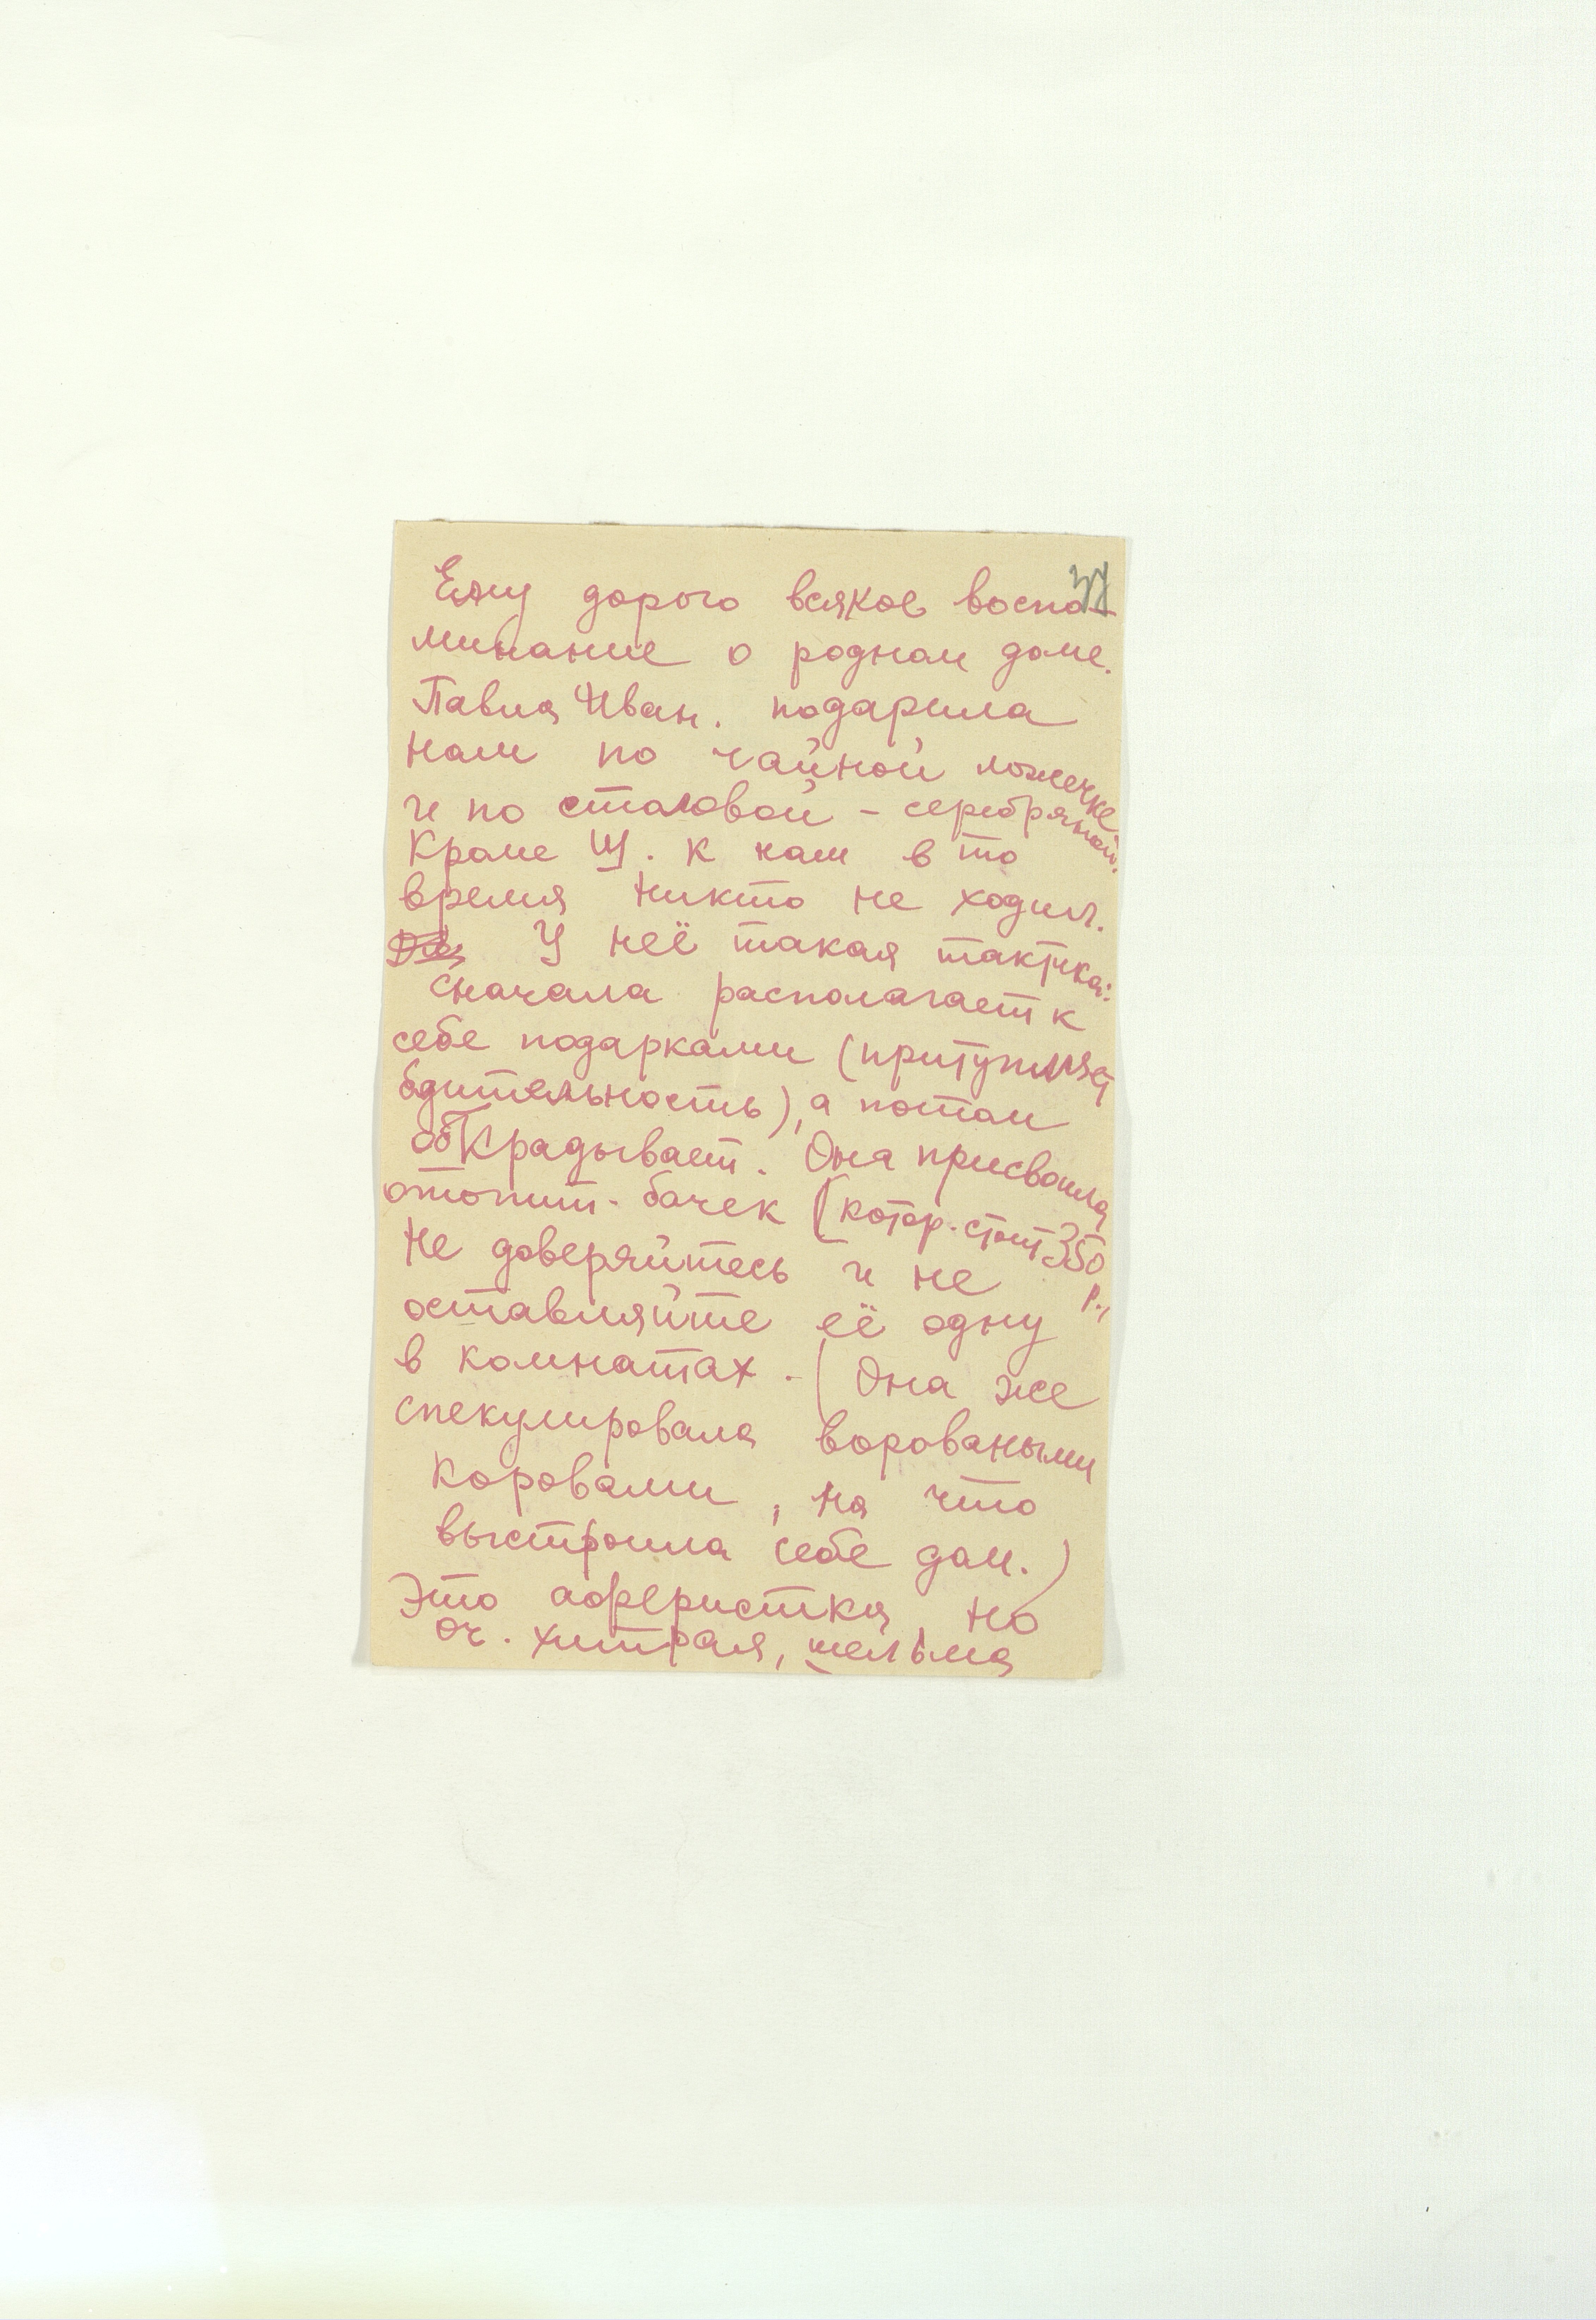 37
Ему дорого всякое воспо-
минание о родном доме.
Павла Иван. подарила
нам по чайной ложечке
и по столовой – серебряной.
Кроме Щ. к нам в то
время никто не ходил.
У неё такая тактика:
сначала располагает к
себе подарками (притупляет
бдительность), а потом
обкрадывает. Она присвоила
отопит. бачек (котор. стоит 350 р.,
Не доверяйтесь и не
оставляйте её одну
в комнатах. (Она же
спекулировала вороваными
коровами, на что
выстроила себе дом.)
Это аферистка, но
оч. хитрая, шельма